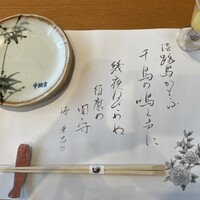 淡路島かよふ
千鳥の鳴く声に
幾夜ねざめぬ
須磨の
関守
源兼昌